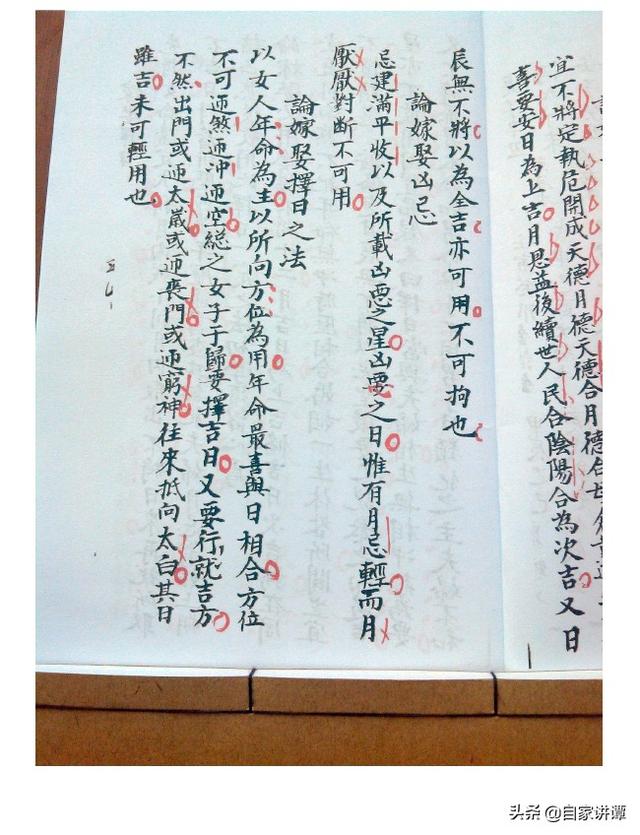 宜不將定執危開成天德月德天德合月德合
喜要安日為上吉月恩益後續世人民合陰陽合為次吉又日
辰無不將以為全吉亦可用不可拘也
論嫁娶凶忌
忌建滿平收以及所載凶惡之星凶惡之日惟有月忌輕而月
厭厭對斷不可用
論嫁娶擇日之法
以女人年命為主以所向方位為用年命最喜與日相合方位
不可逥煞逥冲逥空総之女子于歸要擇吉日又要行就吉方
不然出門或逥太歲或逥喪門或逥窮神往來抵向太白其日
雖吉未可輕用也
头条 @自家讲谭